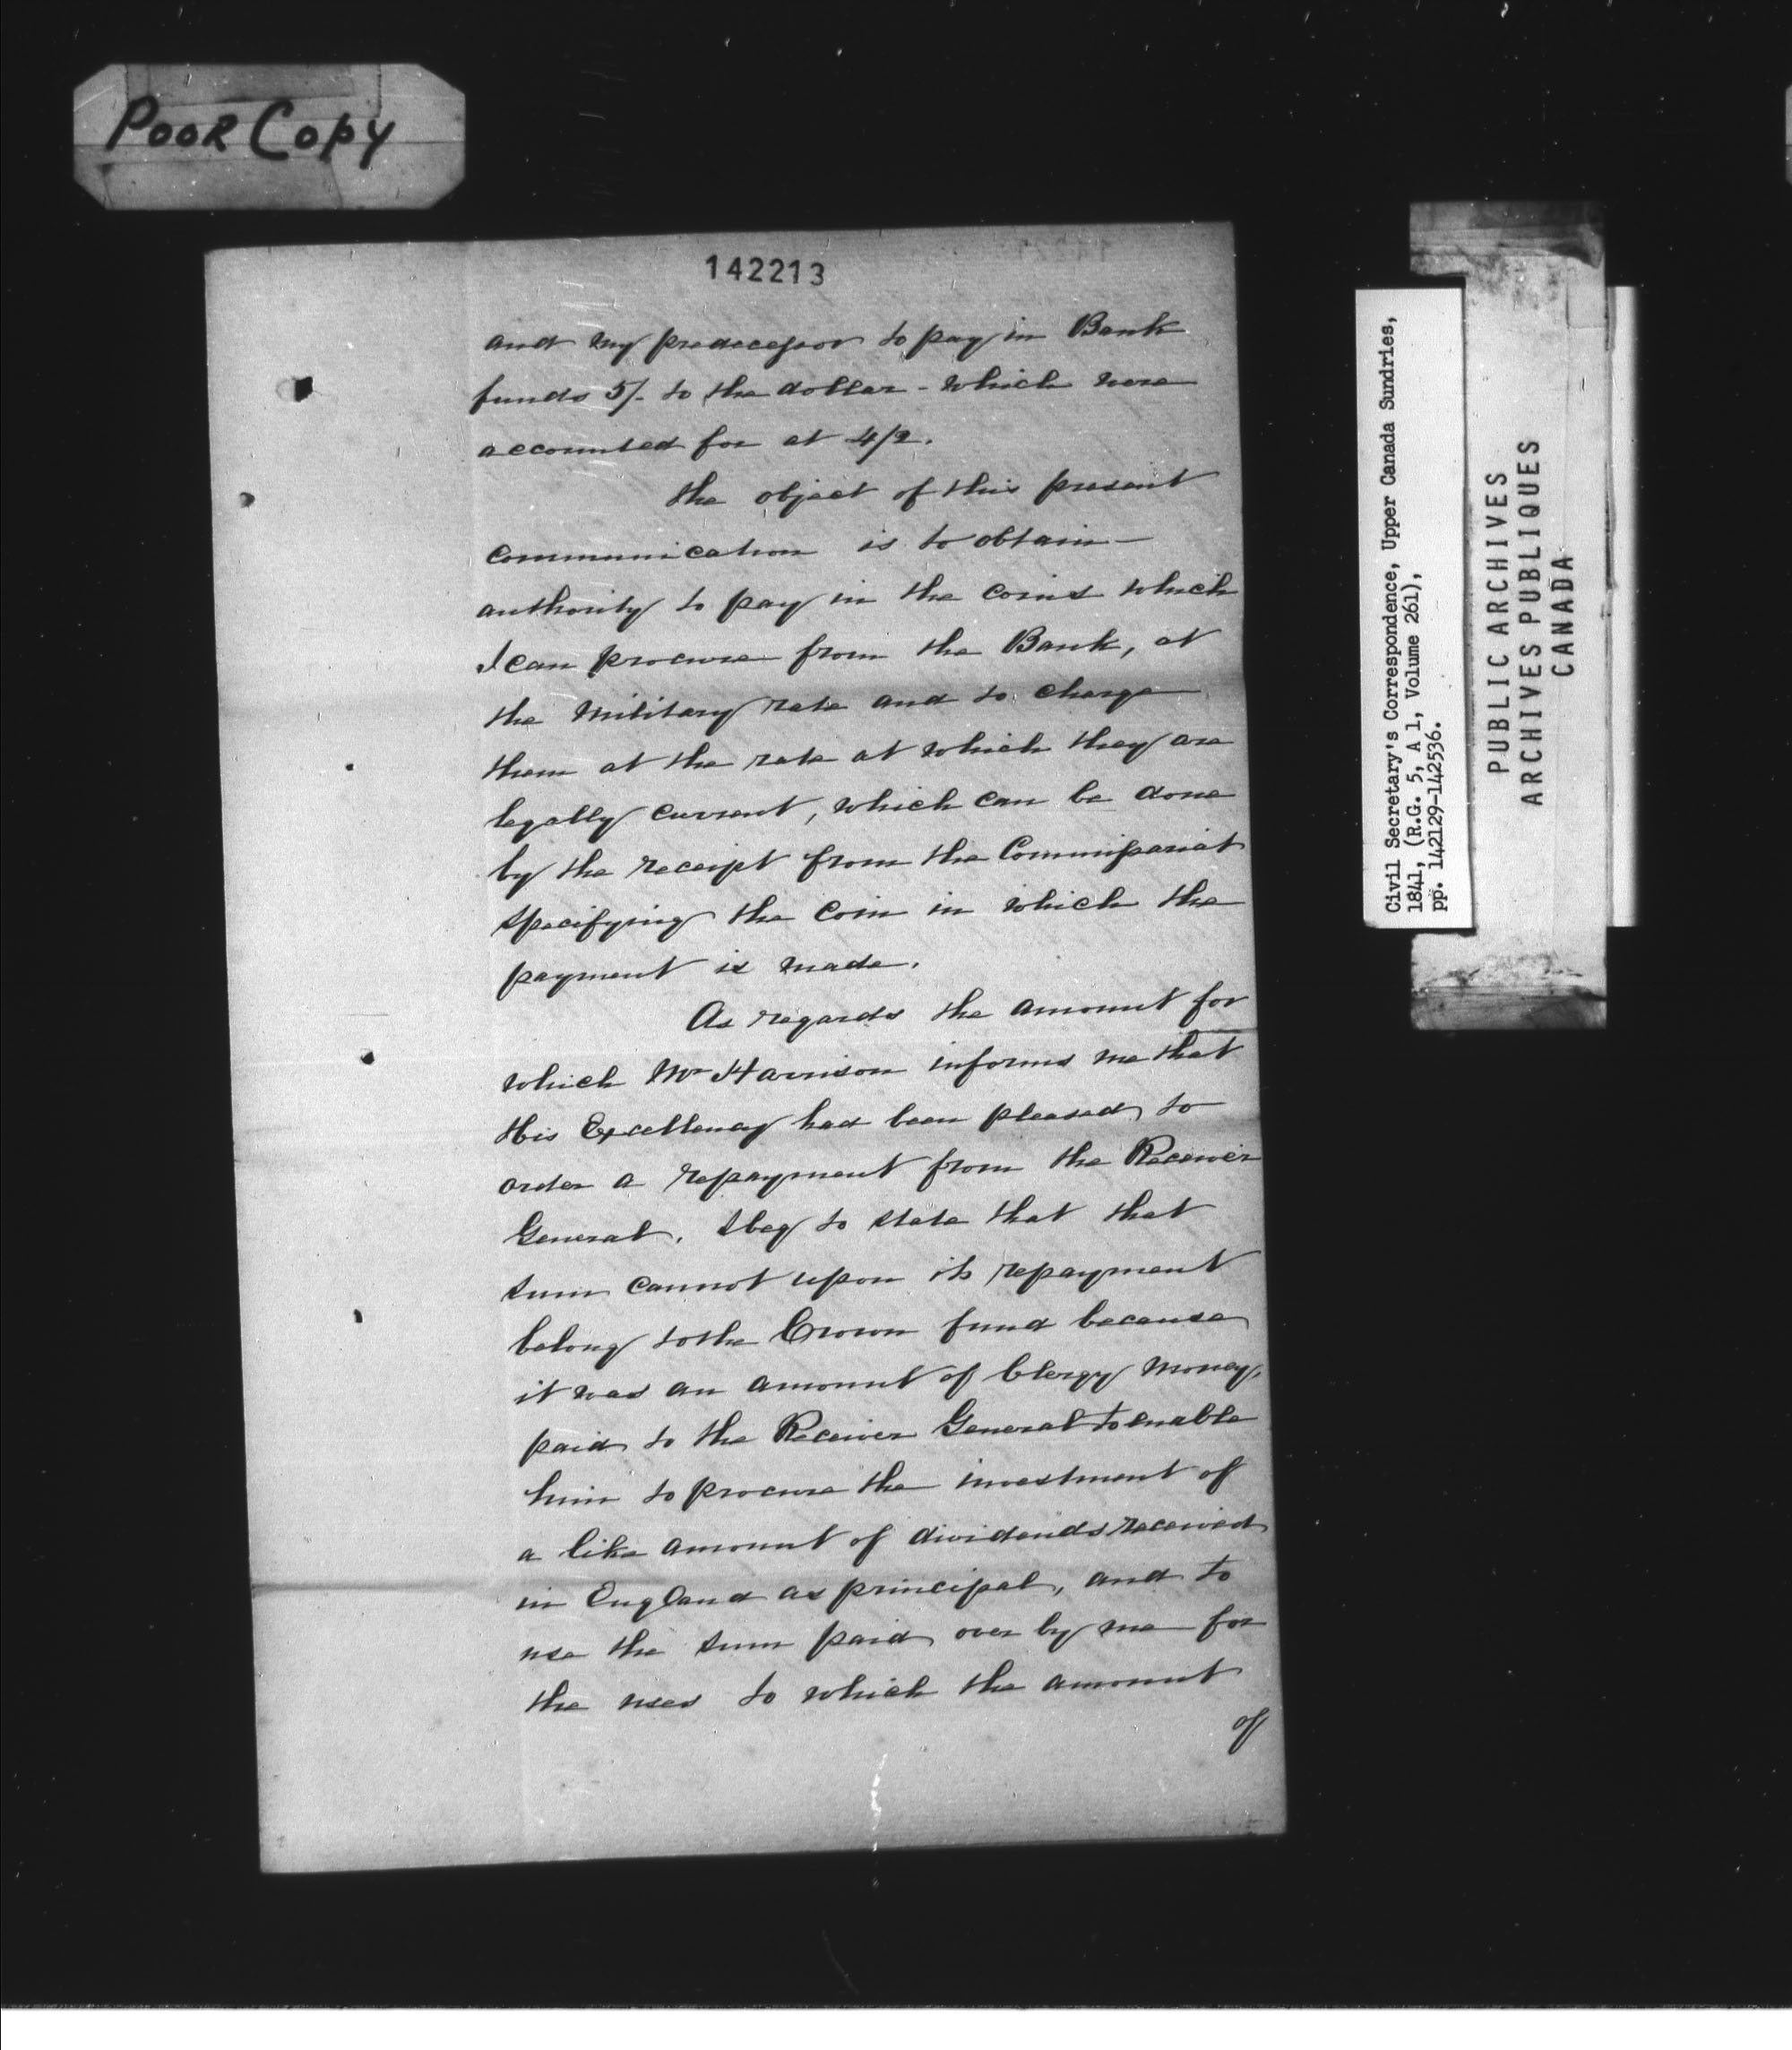 POOR COPY
142213
and my predecessor to pay in Bank
funds 5/- to the dollar - which were
accounted for at 4/2.
the object of this present
communication is to obtain -
authority to pay in the coins which
I can procure from the Bank, at
the Military rate and to charge
them at the rate at which they are
legally current, which can be done
by the receipt from the Commissariat
specifying the Coin in which the
payment is made.
As regards the amount for
which Mr Harrison informs me that
His Excellency had been pleased to
order a repayment from the Receiver
General. I beg to state that that
sum cannot upon its repayment
belong to the Crown fund because
it was an amount of Clergy money,
paid to the Receiver General to enable
him to procure the investment of
a like amount of dividends received
in England as principal, and to
use the sum paid over by me for
the uses to which the amount
of
Civil Secretary's Correspondence, Upper Canada Sundries,
1841, (R.G. 5, A 1, Volume 261),
pp. 142129-142536.
PUBLIC ARCHIVES
ARCHIVES PUBLIQUES
CANADA